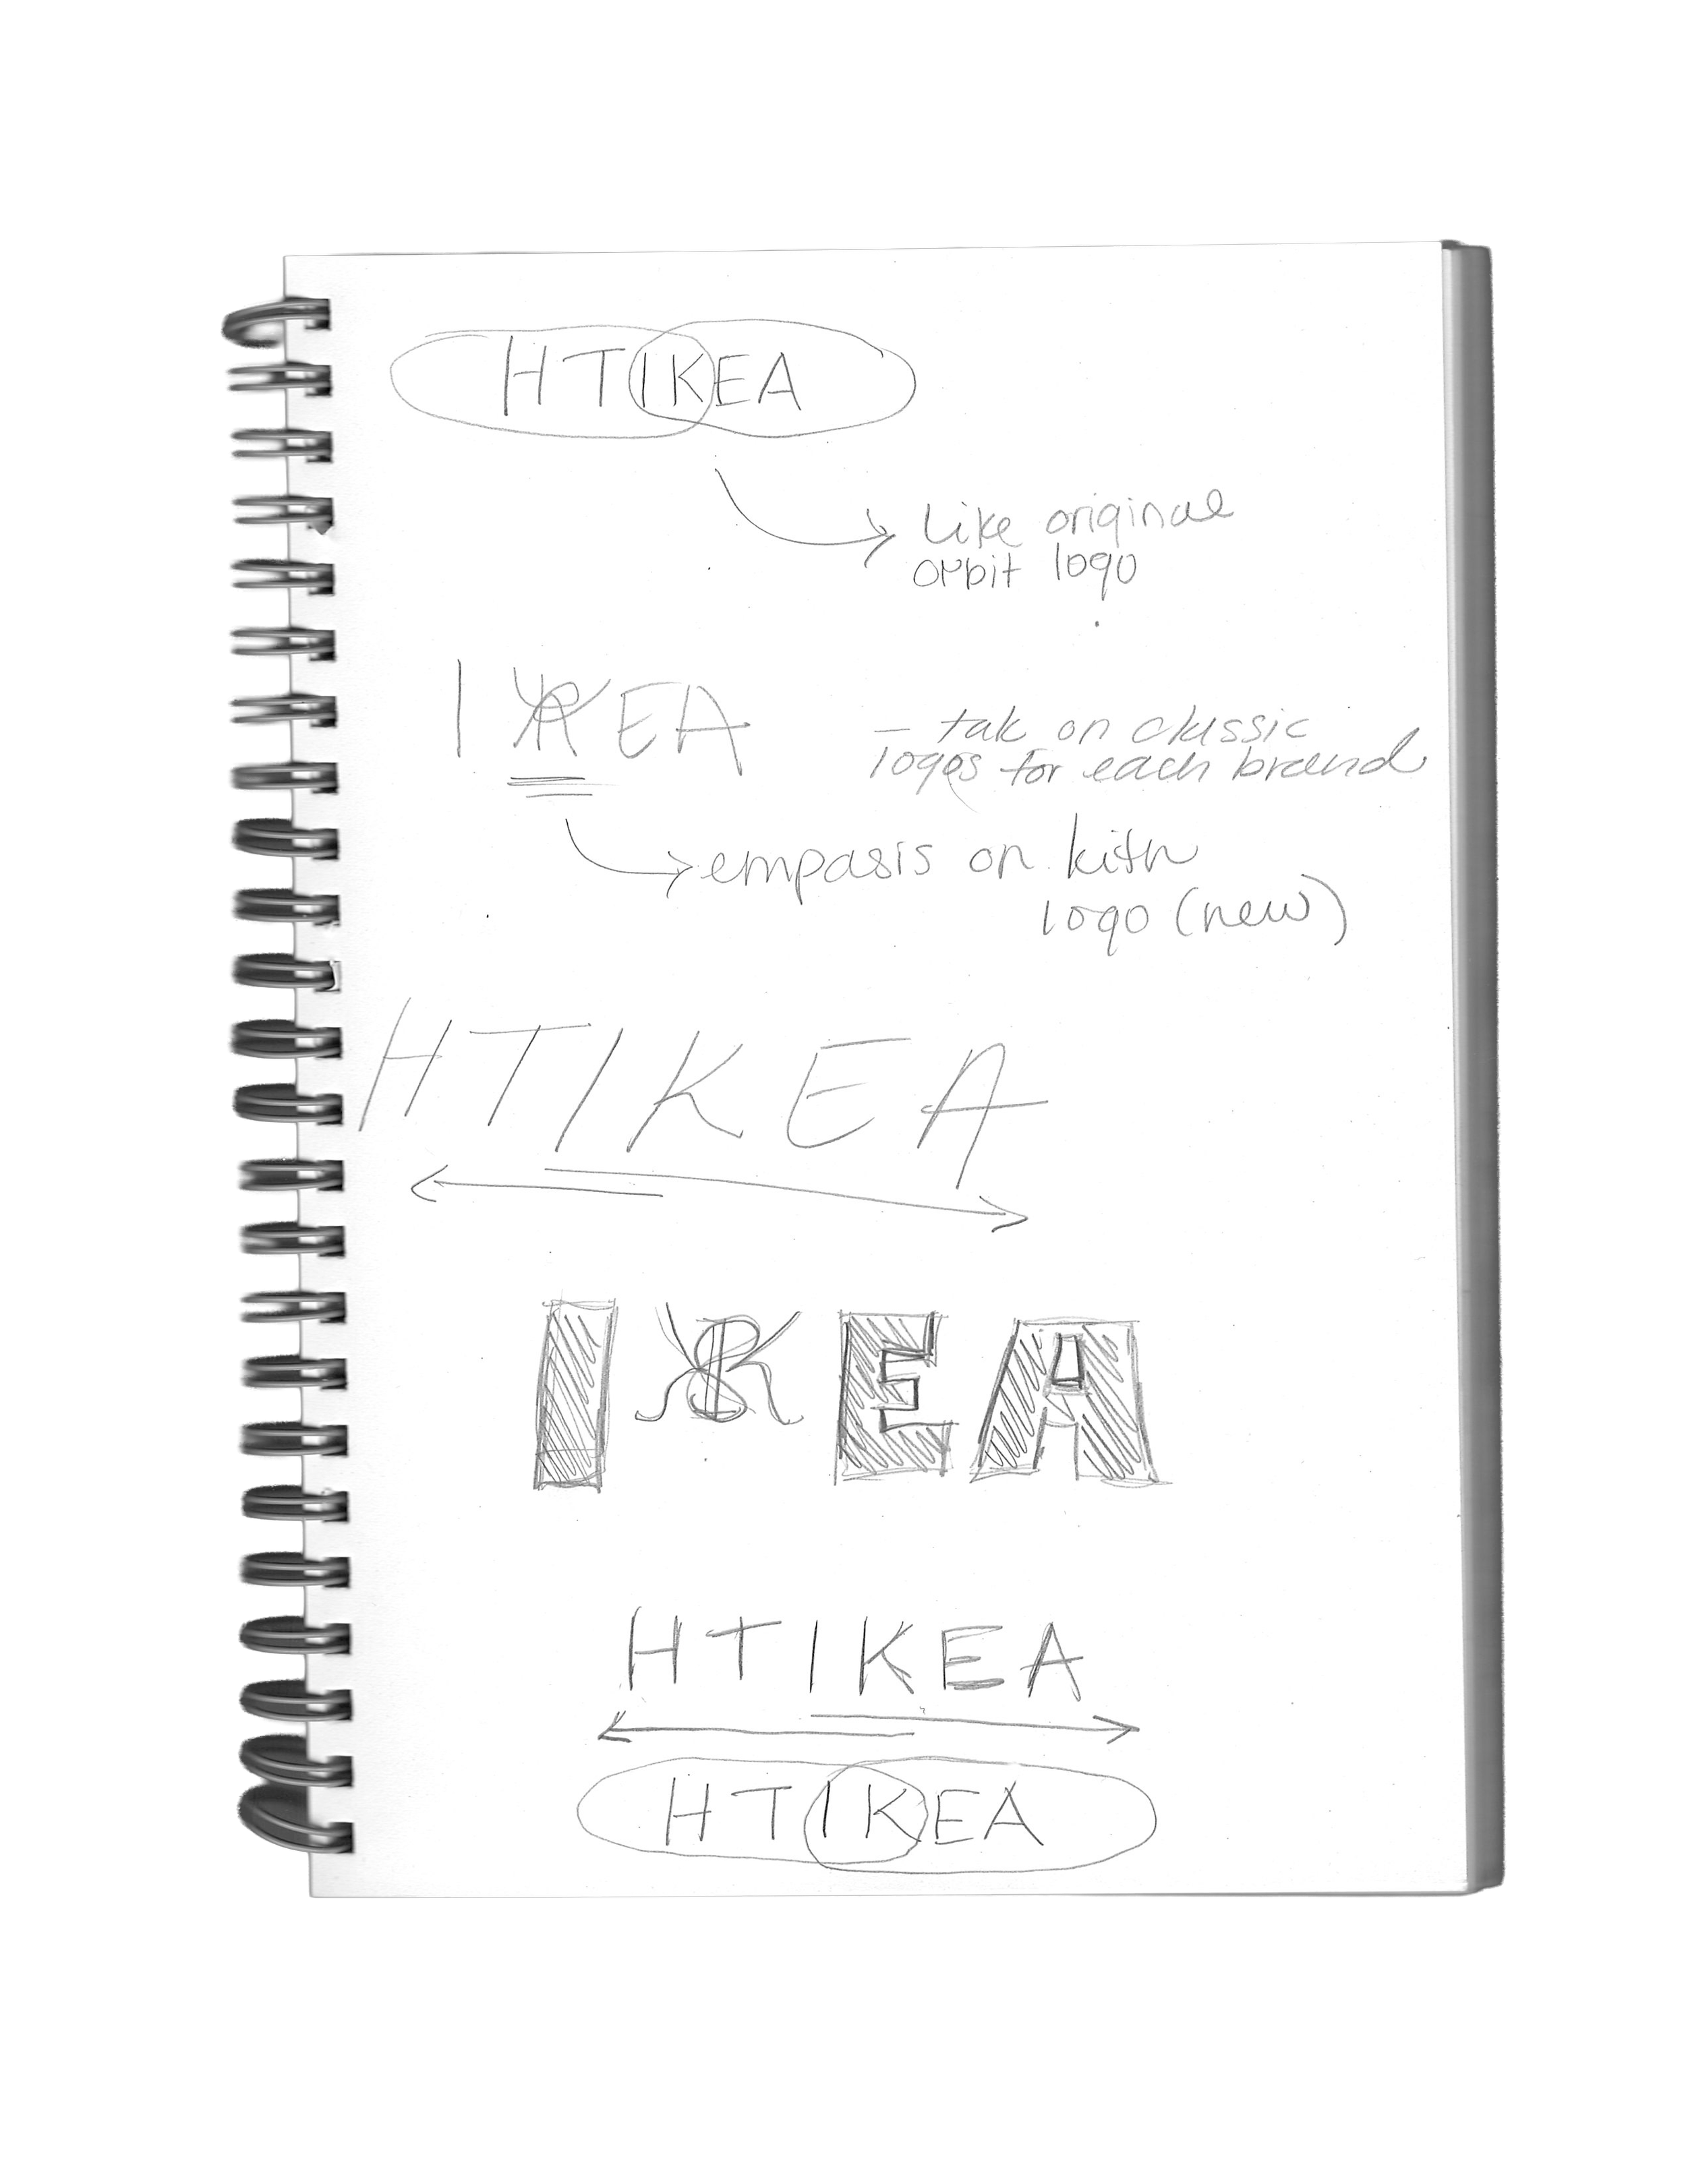 HTIKEA
Like original
orbit logo
IKEA
— tak on classic
logos for each brand
empasis on kith
logo (new)
HTIKEA
IKEA
HTIKEA
HTIKEA